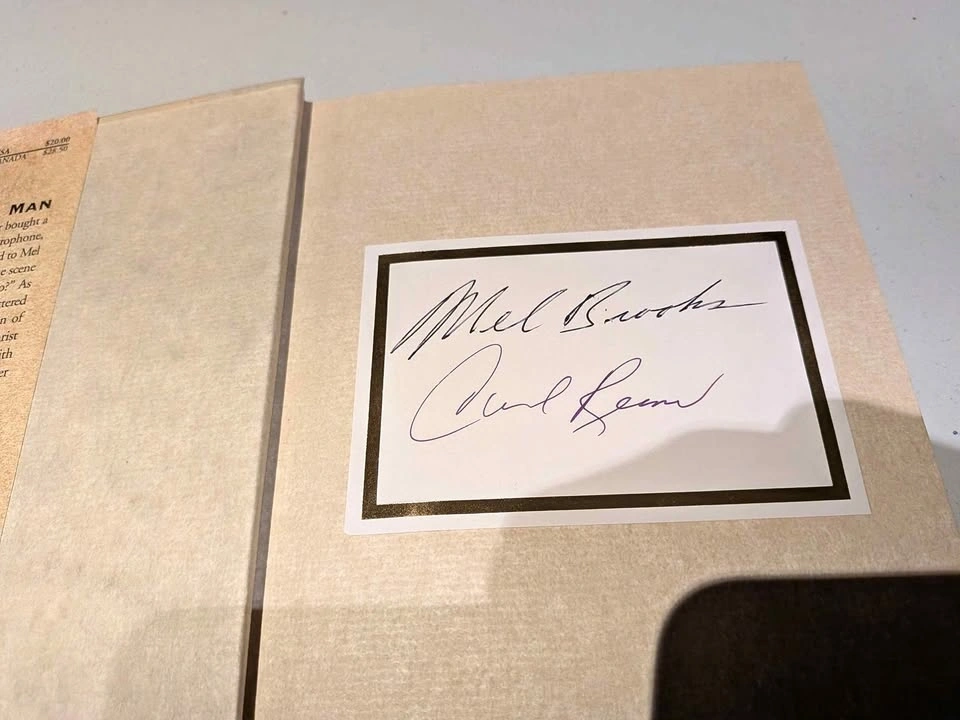 SA $20.00
ANADA $28.50
MAN
bought a
rophone,
d to Mel
e scene
o?" As
tered
n of
rist
ith
er
Mel Brooks
Carl Reiner